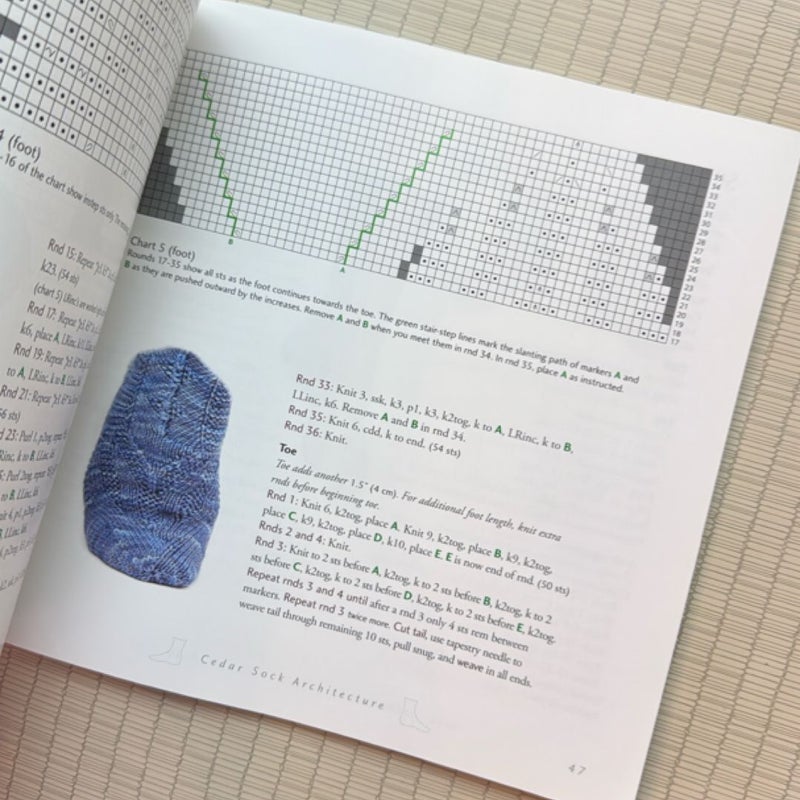 4 (foot)
-16 of the chart show instep sts only. The
Rnd 15: Repeat
k23. (54 sts)
(chart 5)
Rnd 17: Repeat
k6, place A, LRinc,
Rnd 19: Repeat
to A, LRinc, k to B, LLinc,
Rnd 21: Repeat
Purl 1, p2tog,
35
34
33
32
31
30
29
28
27
26
25
24
23
22
21
20
19
18
17
B
A
Chart 5 (foot)
Rounds 17-35 show all sts as the foot continues towards the toe. The green stair-step lines mark the slanting path of markers A and
B as they are pushed outward by the increases. Remove A and B when you meet them in rnd 34. In rnd 35, place A as instructed.
Rnd 33: Knit 3, ssk, k3, p1, k3, k2tog, k to A, LRinc, k to B,
LLinc, k6. Remove A and B in rnd 34.
Rnd 35: Knit 6, cdd, k to end. (54 sts)
Rnd 36: Knit.
Toe
Toe adds another 1.5" (4 cm). For additional foot length, knit extra
rnds before beginning toe.
Rnd 1: Knit 6, k2tog, place A. Knit 9, k2tog, place B, k9, k2tog,
place C, k9, k2tog, place D, k10, place E. E is now end of rnd. (50 sts)
Rnds 2 and 4: Knit.
Rnd 3: Knit to 2 sts before A, k2tog, k to 2 sts before B, k2tog, k to 2
sts before C, k2tog, k to 2 sts before D, k2tog, k to 2 sts before E, k2tog.
Repeat rnds 3 and 4 until after a rnd 3 only 4 sts rem between
markers. Repeat rnd 3 twice more. Cut tail, use tapestry needle to
weave tail through remaining 10 sts, pull snug, and weave in all ends.
Cedar Sock Architecture
47